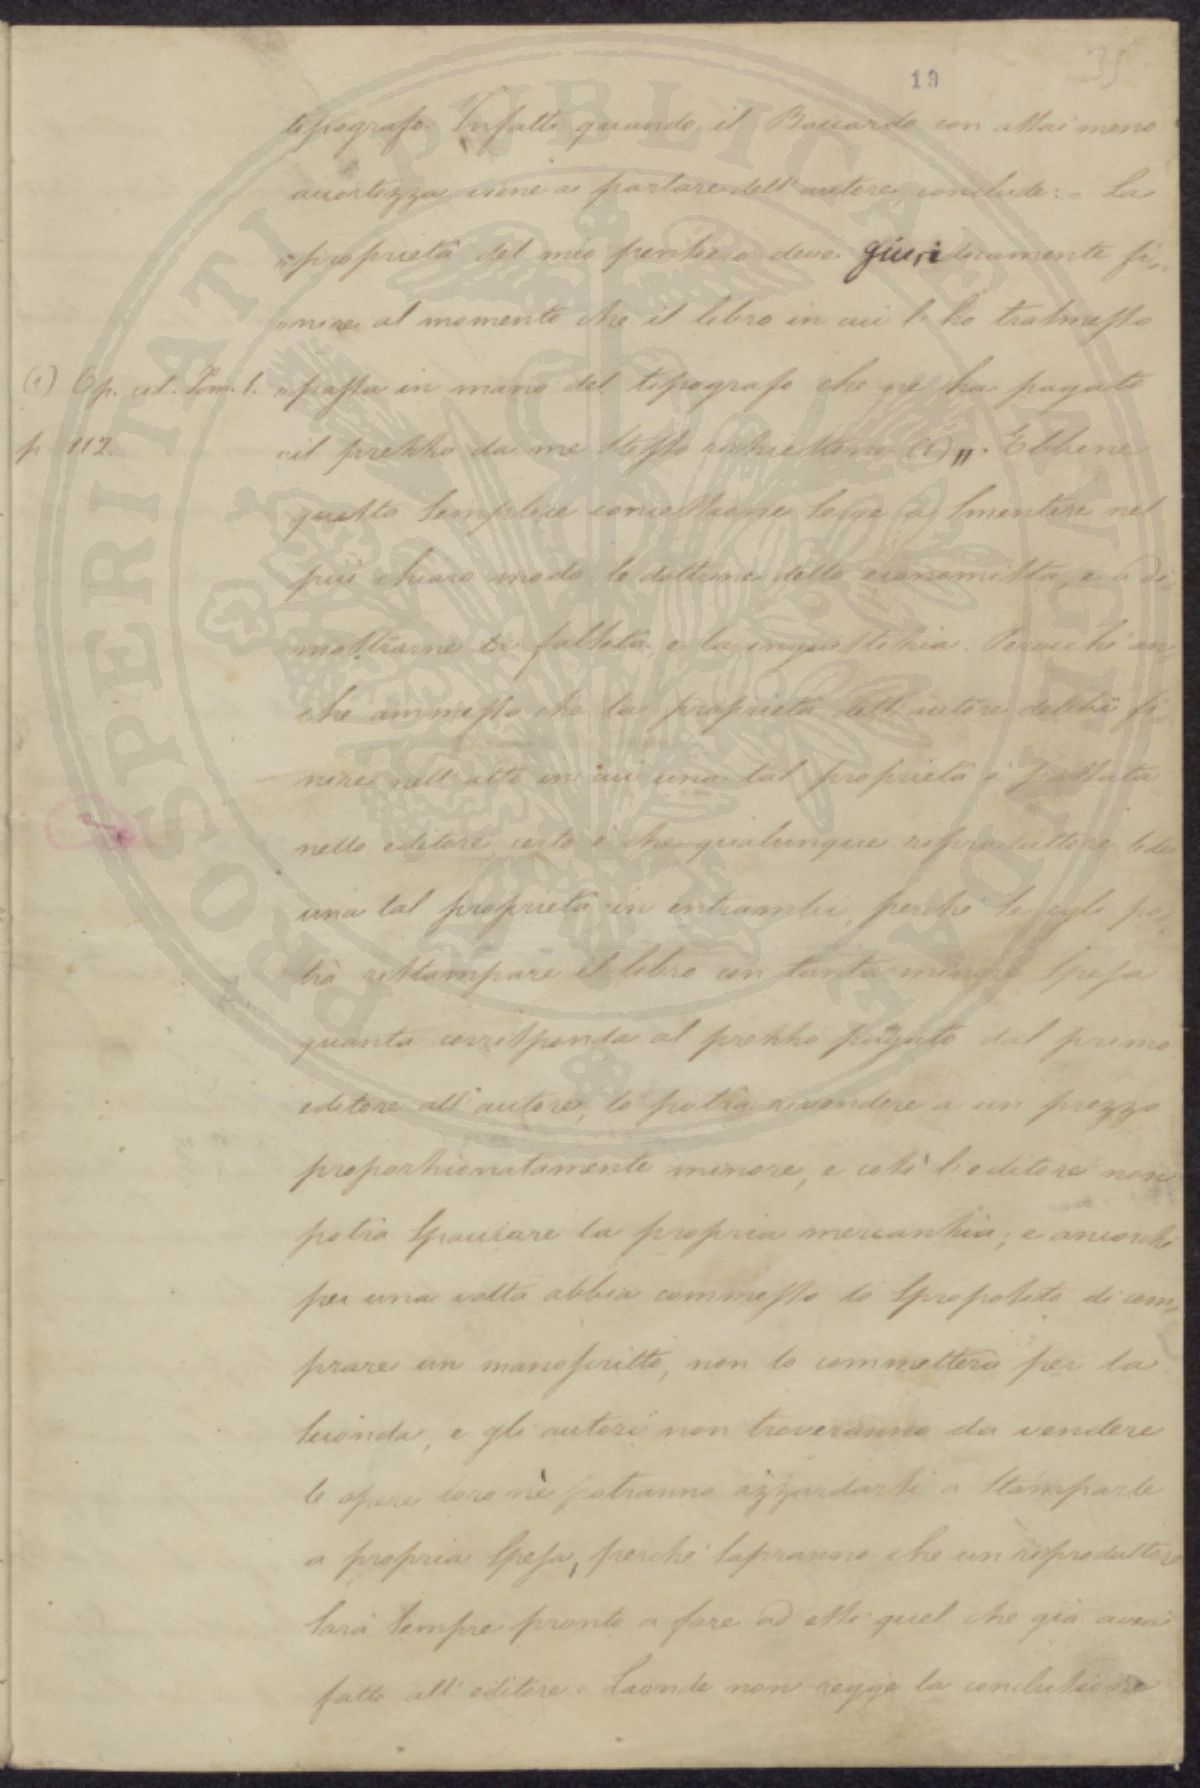 19
35
tipografo. Infatti quando il Boccardo con assai meno
accortezza viene a parlare dell'autore, conclude: - La
"proprietà del mio pensiero deve giuridicamente fi-
"nire al momento che il libro in cui l'ho trasmesso
(1) Op. cit. Tom. 1. "passa in mano del tipografo che ne ha pagato
p. 112. "il prezzo da me stesso richiestono (1)„. Ebbene
questa semplice concessione serve a smentire nel
più chiaro modo le dottrine dello economista, e a di-
mostrarne la falsità, e la ingiustizia. Perocché an-
che ammesso che la proprietà dell'autore debba fi-
nire nell'atto in cui una tal proprietà è passata
nello editore, certo è che qualunque riproduttore lede
una tal proprietà in entrambi, perché se egli po-
trà ristampare il libro con tanta minore spesa
quanta corrisponda al prezzo pagato dal primo
editore all'autore, lo potrà rivendere a un prezzo
proporzionatamente minore, e così l'editore non
potrà spacciare la propria mercanzia; e ancorché
per una volta abbia commesso lo sproposito di com-
prare un manoscritto, non lo commetterà per la
seconda, e gli autori non troveranno da vendere
le opere loro nè potranno azzardarsi a stamparle
a propria spesa, perché sapranno che un riproduttore
sarà sempre pronto a fare ad essi quel che già aveva
fatto all'editore. Laonde non regge la conclusione
PROSPERITATI PVBLICAE AVGENDAE